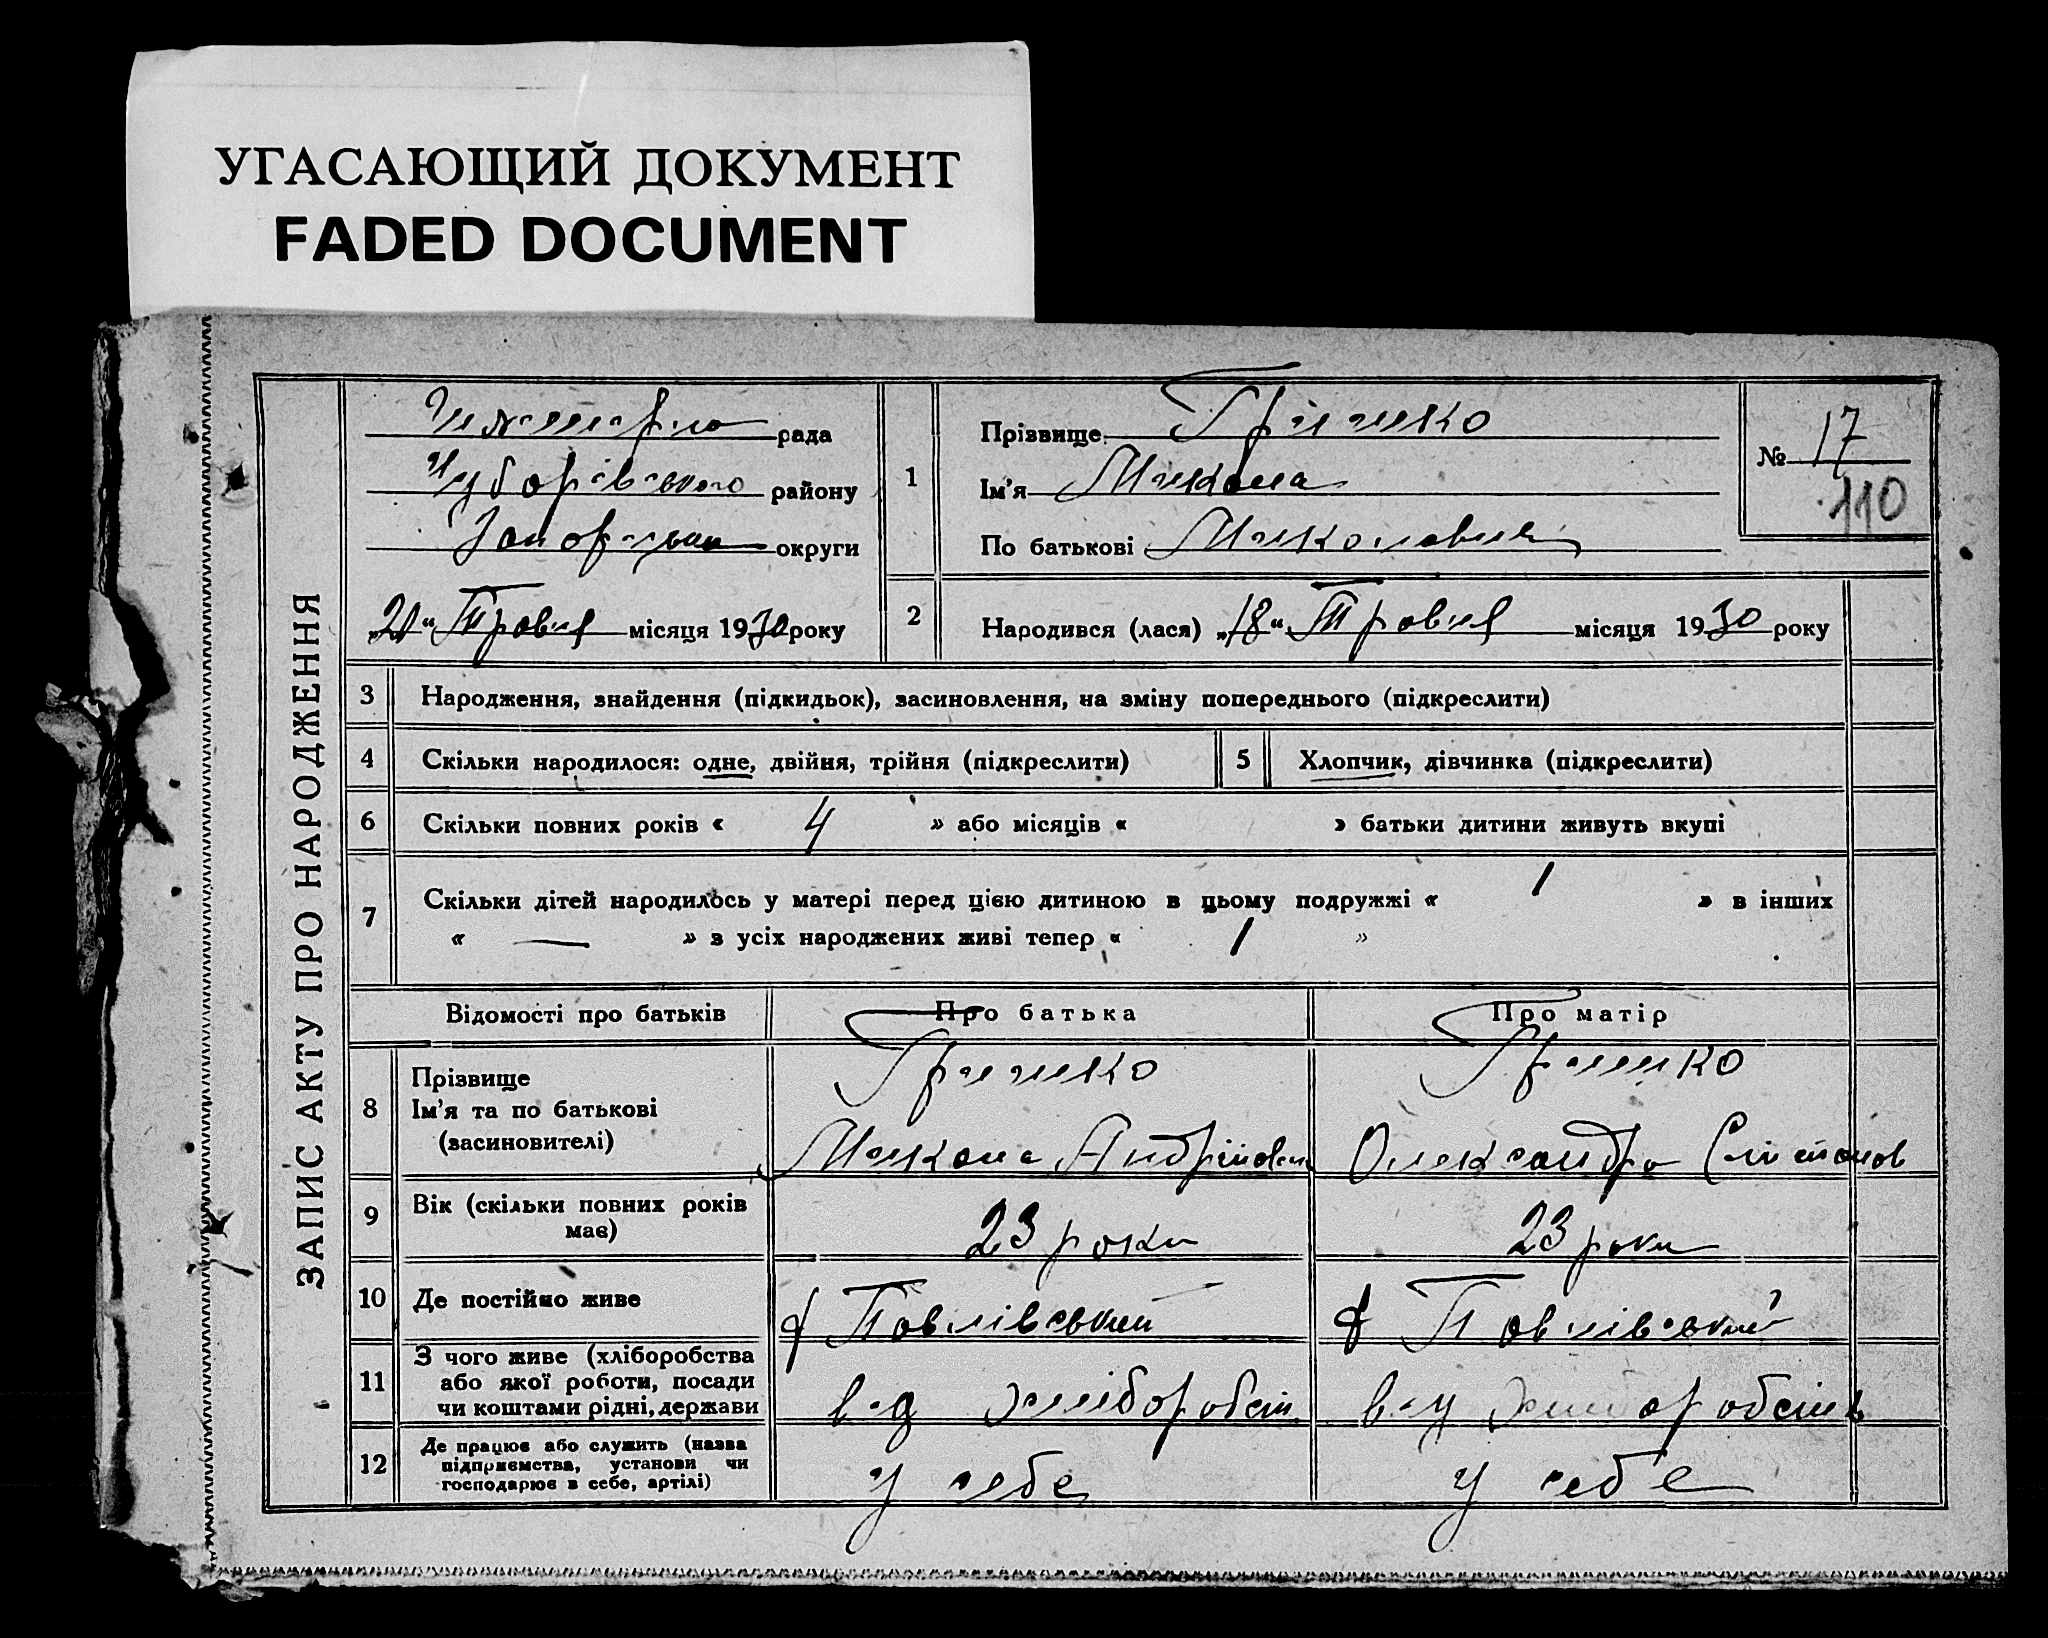 УГАСАЮЩИЙ ДОКУМЕНТ
FADED DOCUMENT
ЗАПИС АКТУ ПРО НАРОДЖЕННЯ
рада
району
округи
„20“ Травня місяця 1930 року
1
Прізвище
Ім'я Микола
По батькові Миколович
№ 17
110
2
Народився (лася) „18“ Травня місяця 1930 року
3 Народження, знайдення (підкидьок), засиновлення, на зміну попереднього (підкреслити)
4 Скільки народилося: одне, двійня, трійня (підкреслити)
5 Хлопчик, дівчинка (підкреслити)
6 Скільки повних років « 4 » або місяців « » батьки дитини живуть вкупі
7 Скільки дітей народилось у матері перед цією дитиною в цьому подружжі « 1 » в інших
« — » з усіх народжених живі тепер « 1 »
Відомості про батьків Про батька Про матір
8 Прізвище
Ім'я та по батькові
(засиновителі)
Микола Андрійович
Олександра
9 Вік (скільки повних років має)
23 роки
23 роки
10 Де постійно живе
Павлівський
Павлівський
11 З чого живе (хліборобства
або якої роботи, посади
чи коштами рідні, держави
від хліборобств
від хліборобств
12 Де працює або служить (назва
підприємства, установи чи
господарює в себе, артілі)
у себе
у себе